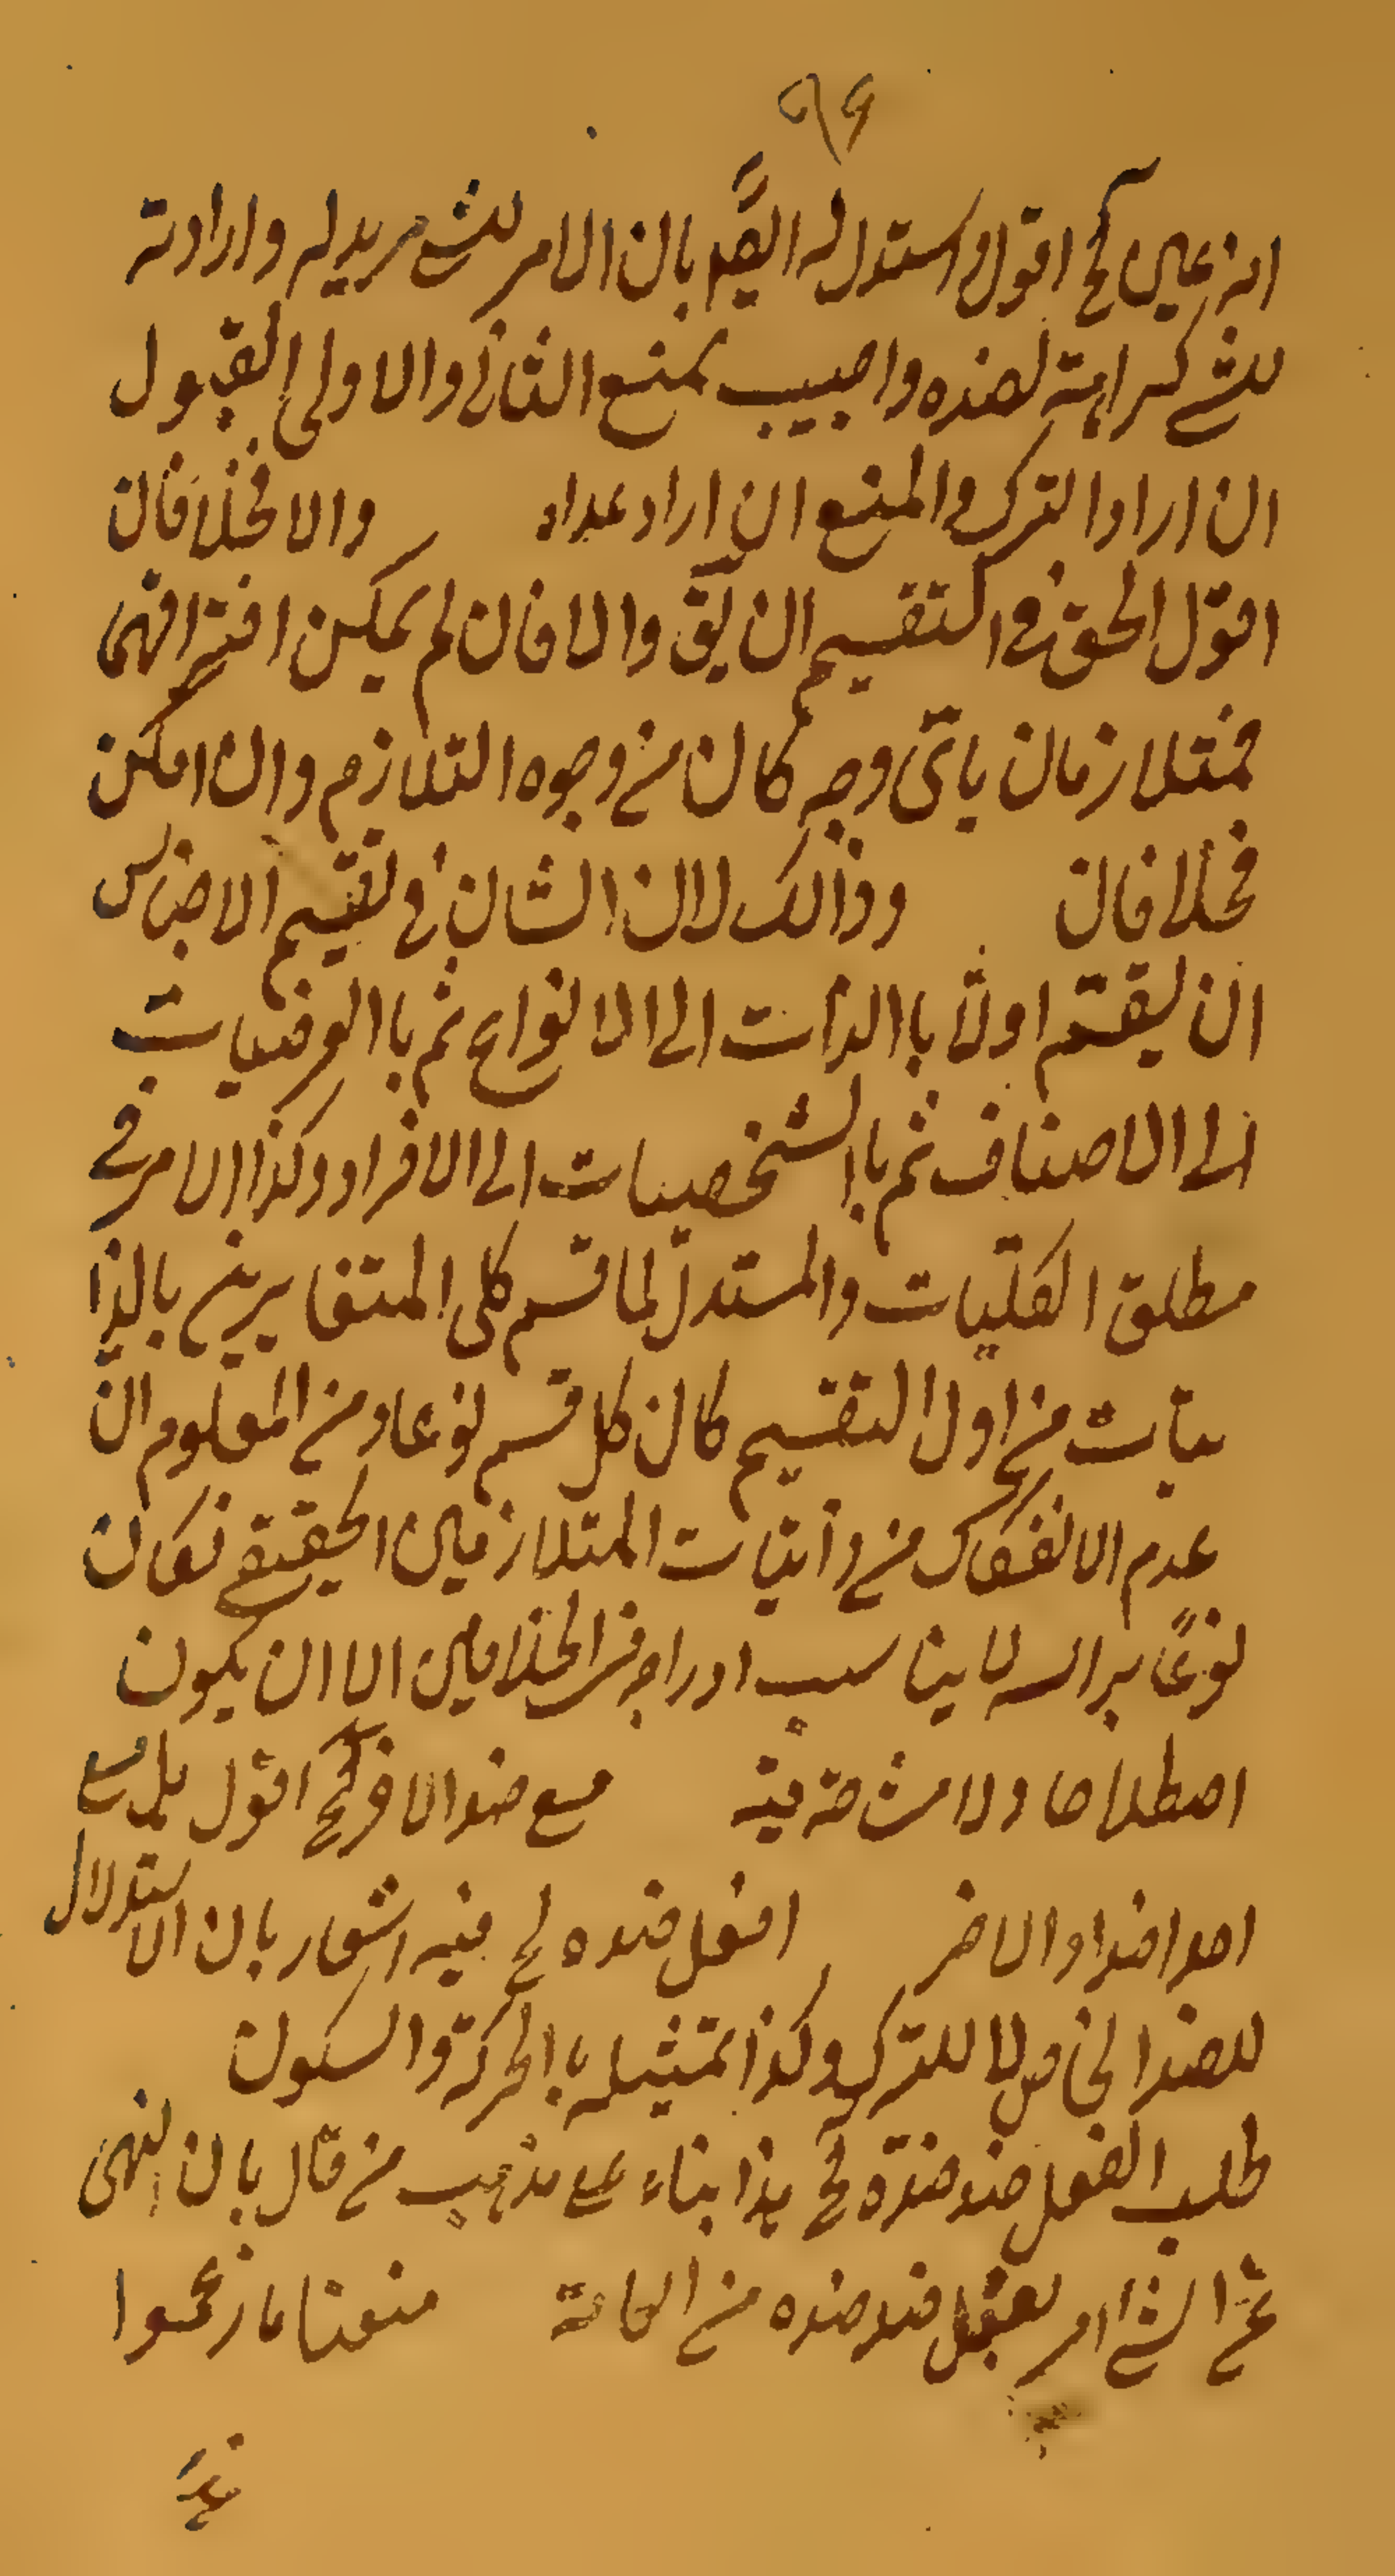 ۹۶
انه عين الخ اقول واستدل له ايضًا بان الامر للشئ مريد له وارادته
للشئ كراهته لضده واجيب بمنع الثانی والاولی القبول
ان اراد الترك والمنع ان اراد عداه والا فخلافان
اقول الحق فی التقسيم ان يق والا فان لم يمكن افتراقهما
فمتلازمان بایّ وجه كان من وجوه التلازم وان امكن
فخلافان وذالك لان الشان فی تقسيم الاجناس
ان يقسّم اولًا باالذات الی الانواع ثم باالوضعيات
الی الاصناف ثم باالشخصيات الی الافراد وكذا الامر فی
مطلق الكليّات والمستدلّ لما قسم كلی المتغايرين بالذا
تيات من اول التقسيم كان كل قسم نوعا ومن المعلوم انّ
عدم الانفكاك من ذاتيات المتلازمين الحقيقی فكان
نوعًا براسه لا يناسب ادراجه فی الخلافين الا ان يكون
اصطلاحا ولا مشاحة فيه مع ضد الاخر الخ اقول بل مع
احد اضداد الاخر افعل ضده الخ فيه اشعار بان الاستدلال
للضد الخاص لا للترك وكذا تمثيله باالحركة والسكون
طلب الفعل ضد ضدّه الخ هذا بناء علی مذهب من قال بان النهی
عن الشئ امر بفعل ضد ضده من العامة منعنا ما زعموا